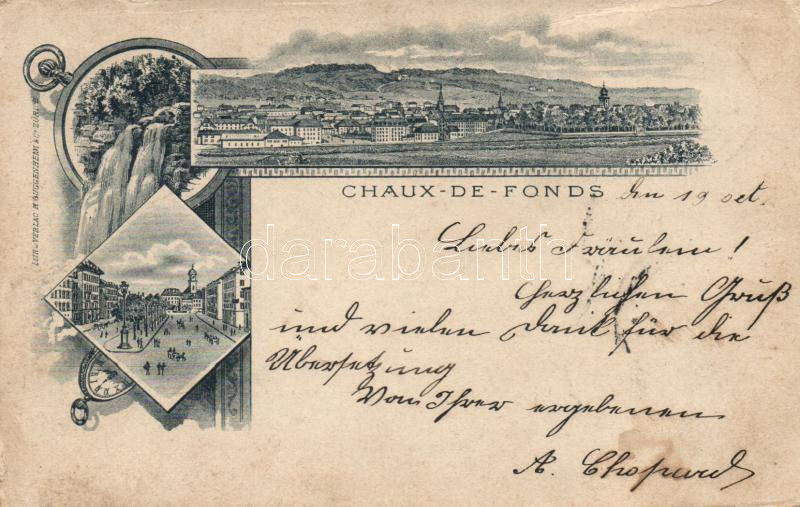 CHAUX-DE-FONDS den 19 oct.
Liebes Fräulein!
Herzlichen Gruß
und vielen Dank für die
Übersetzung
Von Ihrer ergebenen
A. Chopard
LITH-VERLAG H. GUGGENHEIM & Co. ZÜRICH
darabanth